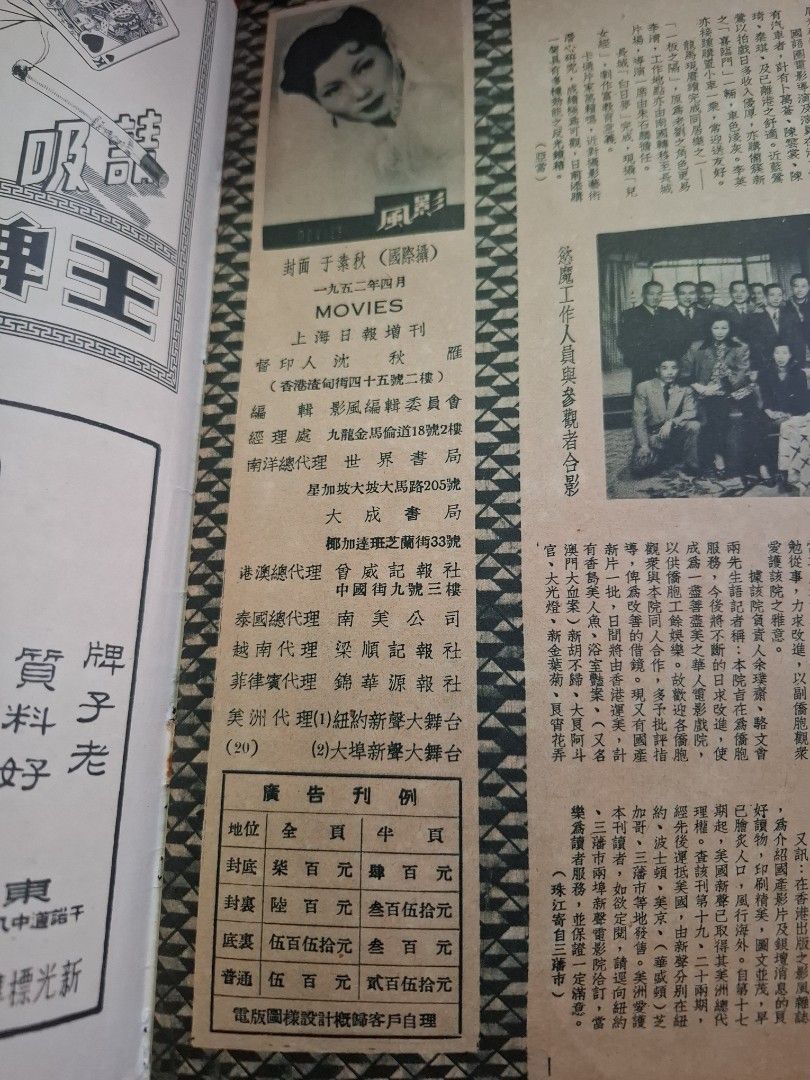 請
吸
王
牌
牌子老
質料好
東
新光標
影風
封面 于素秋(國際攝)
一九五二年四月
MOVIES
上海日報增刊
督印人沈秋雁
(香港渣甸街四十五號二樓)
編輯 影風編輯委員會
經理處 九龍金馬倫道18號2樓
南洋總代理 世界書局
星加坡大坡大馬路205號
大成書局
椰加達班芝蘭街33號
港澳總代理 曾威記報社
中國街九號三樓
泰國總代理 南美公司
越南代理 梁順記報社
菲律賓代理 錦華源報社
美洲代理(1)紐約新聲大舞台
(20) (2)大埠新聲大舞台
廣告刊例
地位 全頁 半頁
封底 柒百元 肆百元
封裏 陸百元 叁百伍拾元
底裏 伍百伍拾元 叁百元
普通 伍百元 貳百伍拾元
電版圖樣設計概歸客戶自理
有汽車者,計有卜萬蒼、陳雲裳、陳
琦、秦琪、及已離港之舒適。近藍鶯
鶯以拍戲日多收入優厚,亦購備簇新
之「喜臨門」一輛,車色淺灰。李英
亦接踵購置小車一乘,常迎送友好。
龍馬現賡續完成同居樂之一——
「一板之隔」,原為老劉之角色更易
李清,工作地點亦由南國轉移至長城
片場,導演一席由朱石麟擔任。
長城「白日夢」完成,現攝「兒
女經」,劇作富教育意義。
潛心研究,成績極為可觀,日前添購
一架具有多種効能之反光鏡箱。
(亞當)
慾魔工作人員與參觀者合影
勉從事,力求改進,以副僑胞觀眾
愛護該院之雅意。
據該院負責人余璞齋、駱文會
兩先生語記者稱:本院旨在為僑胞
服務,今後將不斷的日求改進,使
成為一盡善盡美之華人電影戲院,
以供僑胞工餘娛樂。故歡迎各僑胞
觀眾與本院同人合作,多予批評指
導,俾為改善的借鏡。現又有國產
新片一批,日間將由香港運美,計
有香島美人魚、浴室豔案、(又名
澳門大血案)新胡不歸、大良阿斗
官、大光燈、新金葉菊、艮宵花弄
又訊:在香港出版之影風雜誌
,為介紹國產影片及銀壇消息的良
好讀物,印刷精美,圖文並茂,早
已膾炙人口,風行海外。自第十七
期起,美國新聲已取得其美洲總代
理權。查該刊第十九、二十兩期,
經先後運抵美國,由新聲分別在紐
約、波士頓、美京、(華盛頓)芝
加哥、三藩市等地發售。美洲愛護
本刊讀者,如欲定閱,請逕向紐約
、三藩市兩埠新聲電影院洽訂,當
樂為讀者服務,並保證一定滿意。
(珠江寄自三藩市)